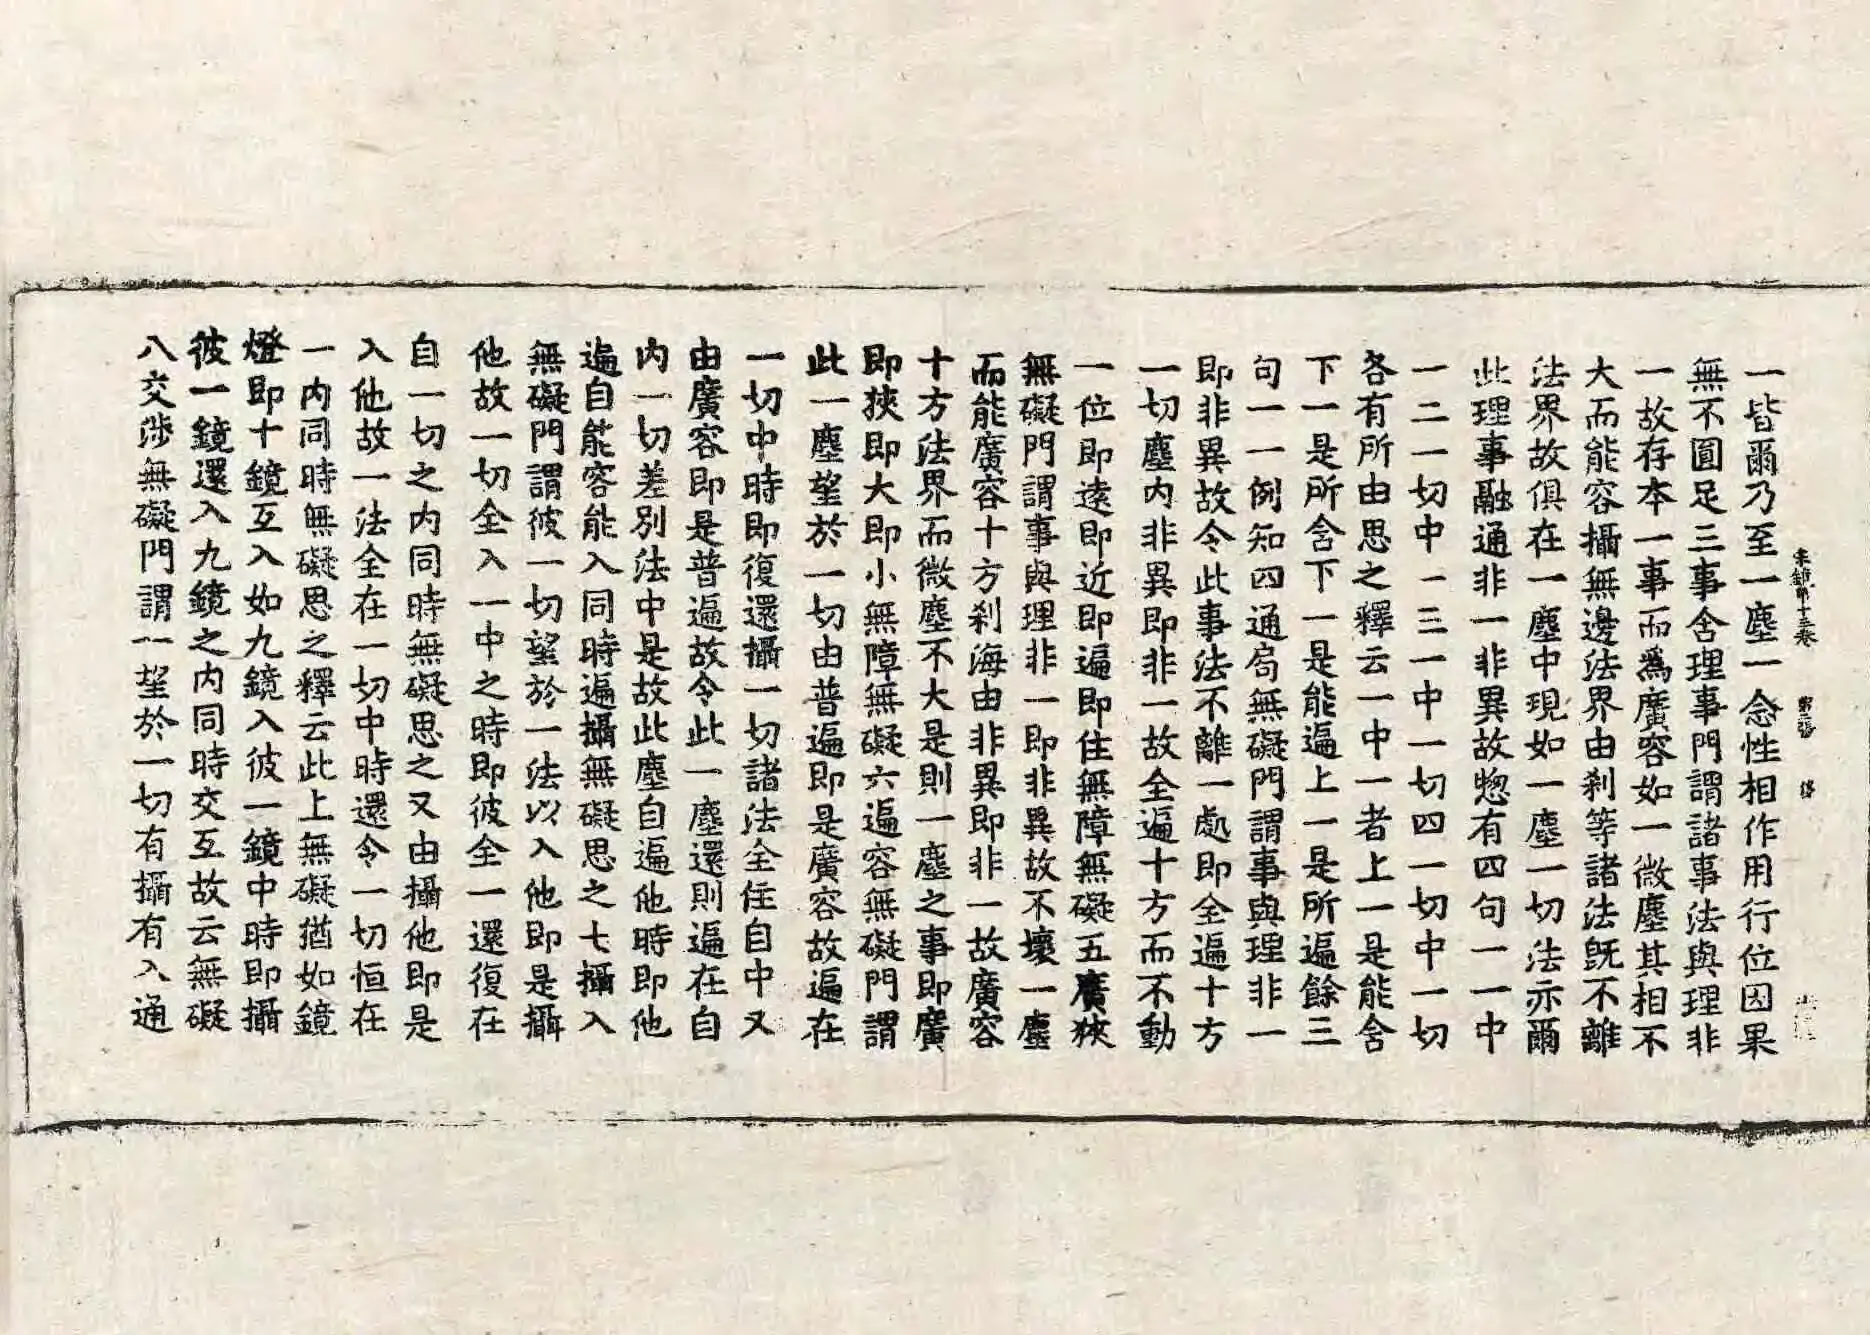 宗鏡第十三卷 第二張
一皆爾乃至一塵一念性相作用行位因果
無不圓足三事含理事門謂諸事法與理非
一故存本一事而爲廣容如一微塵其相不
大而能容攝無邊法界由刹等諸法旣不離
法界故俱在一塵中現如一塵一切法亦爾
此理事融通非一非異故惣有四句一一中
一二一切中一三一中一切四一切中一切
各有所由思之釋云一中一者上一是能含
下一是所含下一是能遍上一是所遍餘三
句一一例知四通局無礙門謂事與理非一
即非異故令此事法不離一處即全遍十方
一切塵內非異即非一故全遍十方而不動
一位即遠即近即遍即住無障無礙五廣狹
無礙門謂事與理非一即非異故不壞一塵
而能廣容十方刹海由非異即非一故廣容
十方法界而微塵不大是則一塵之事即廣
即狹即大即小無障無礙六遍容無礙門謂
此一塵望於一切由普遍即是廣容故遍在
一切中時即復還攝一切諸法全住自中又
由廣容即是普遍故令此一塵還則遍在自
內一切差別法中是故此塵自遍他時即他
遍自能容能入同時遍攝無礙思之七攝入
無礙門謂彼一切望於一法以入他即是攝
他故一切全入一中之時即彼全一還復在
自一切之內同時無礙思之又由攝他即是
入他故一法全在一切中時還令一切恒在
一內同時無礙思之釋云此上無礙猶如鏡
燈即十鏡互入如九鏡入彼一鏡中時即攝
彼一鏡還入九鏡之內同時交互故云無礙
八交涉無礙門謂一望於一切有攝有入通